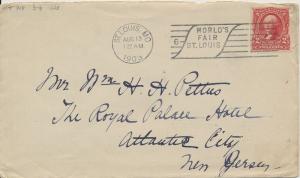 ST. LOUIS, MO.
AUG 13
12 AM
1903
6
WORLD'S
FAIR
ST. LOUIS
Mr Wm H. H. Pettus
The Royal Palace Hotel
Atlantic City
New Jersey